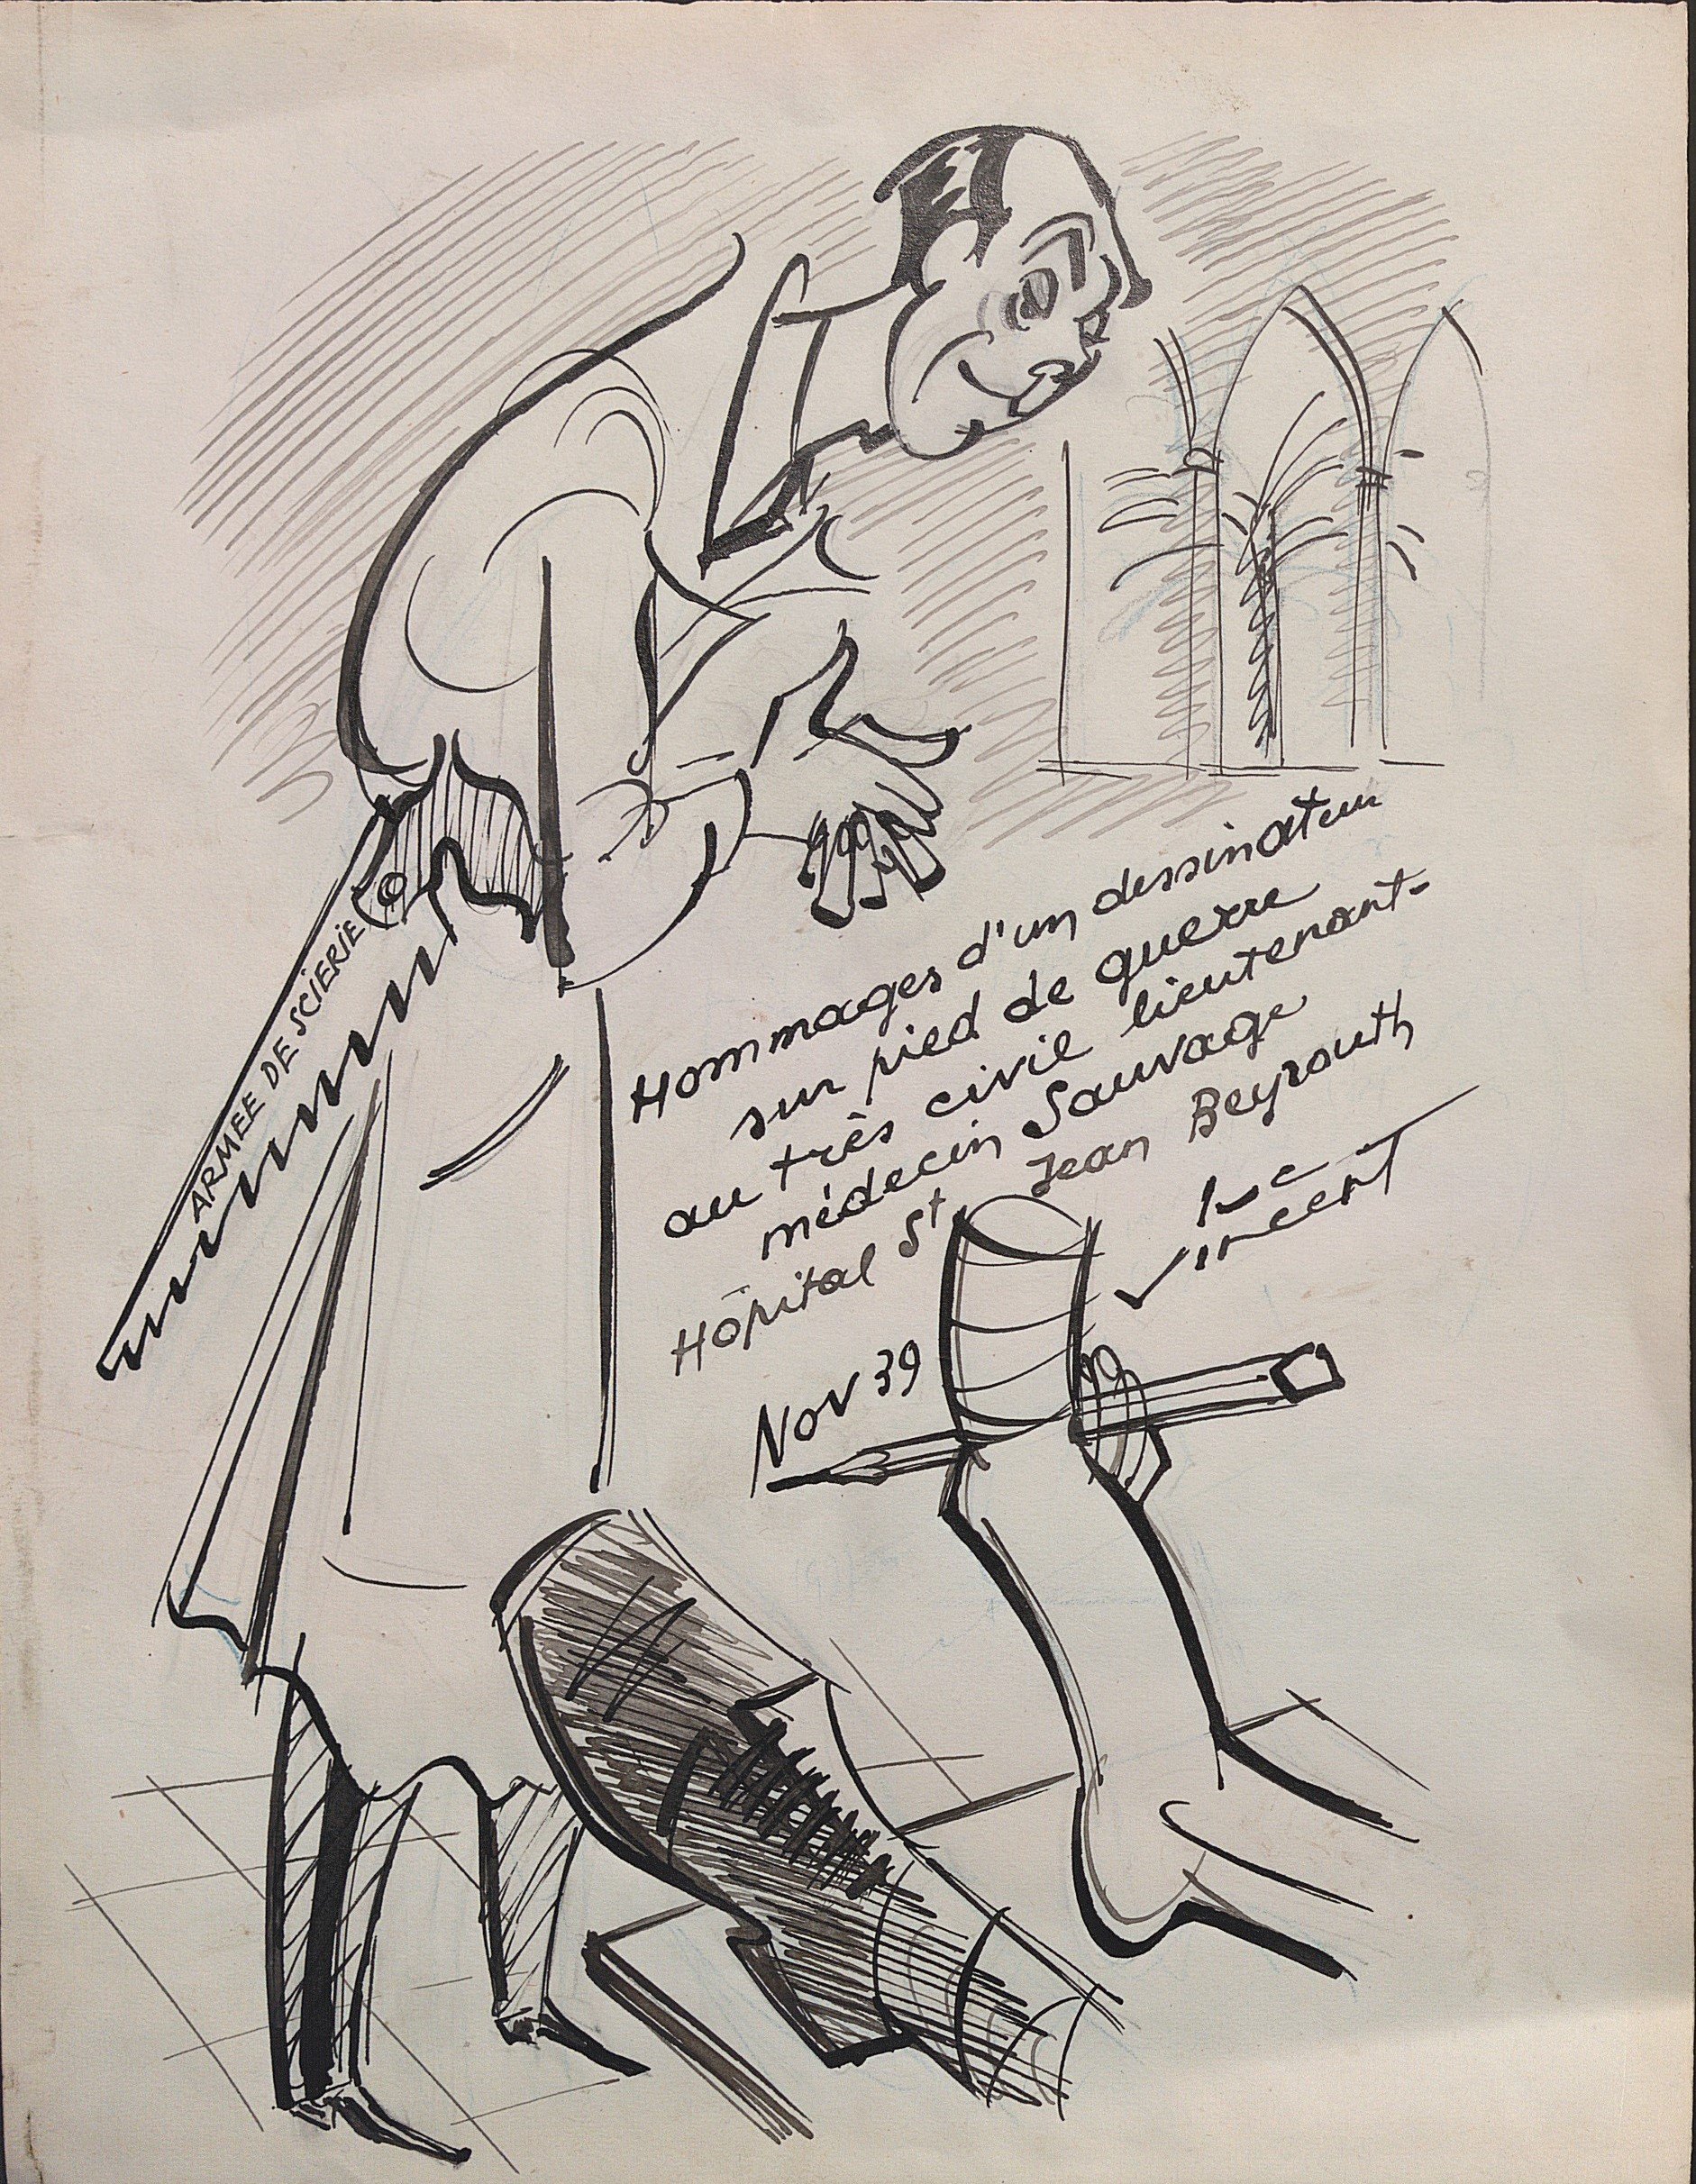 ARMEE DE SCIERIE
Hommages d'un dessinateur
sur pied de guerre
au très civil lieutenant-
médecin Sauvage
Hôpital St Jean Beyrouth
Nov 39
Luc
Vincent